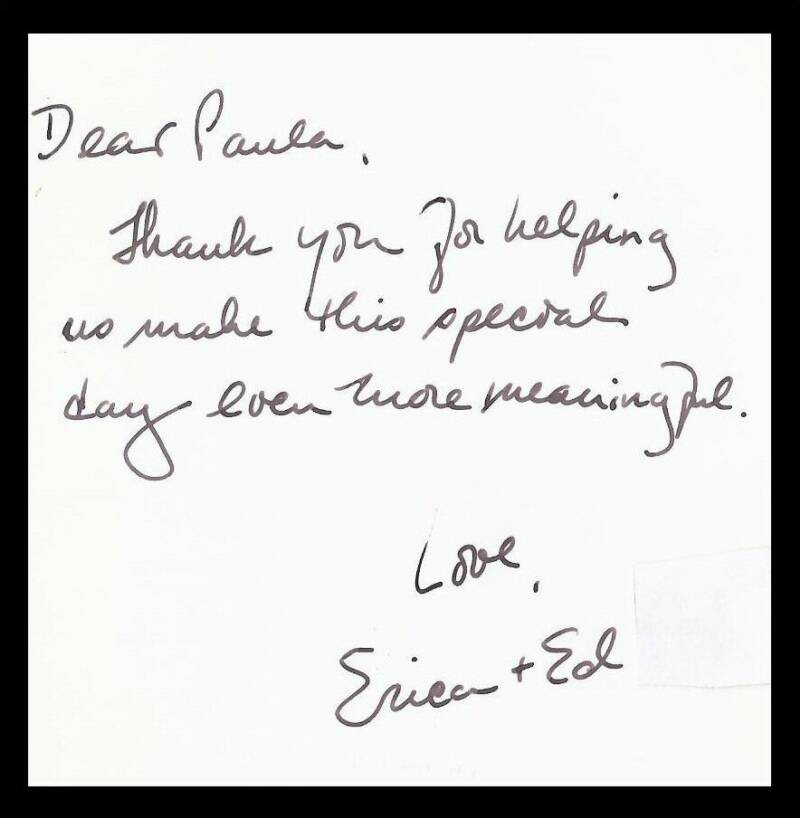 Dear Paula,
Thank you for helping
us make this special
day even more meaningful.
Love,
Erica + Ed